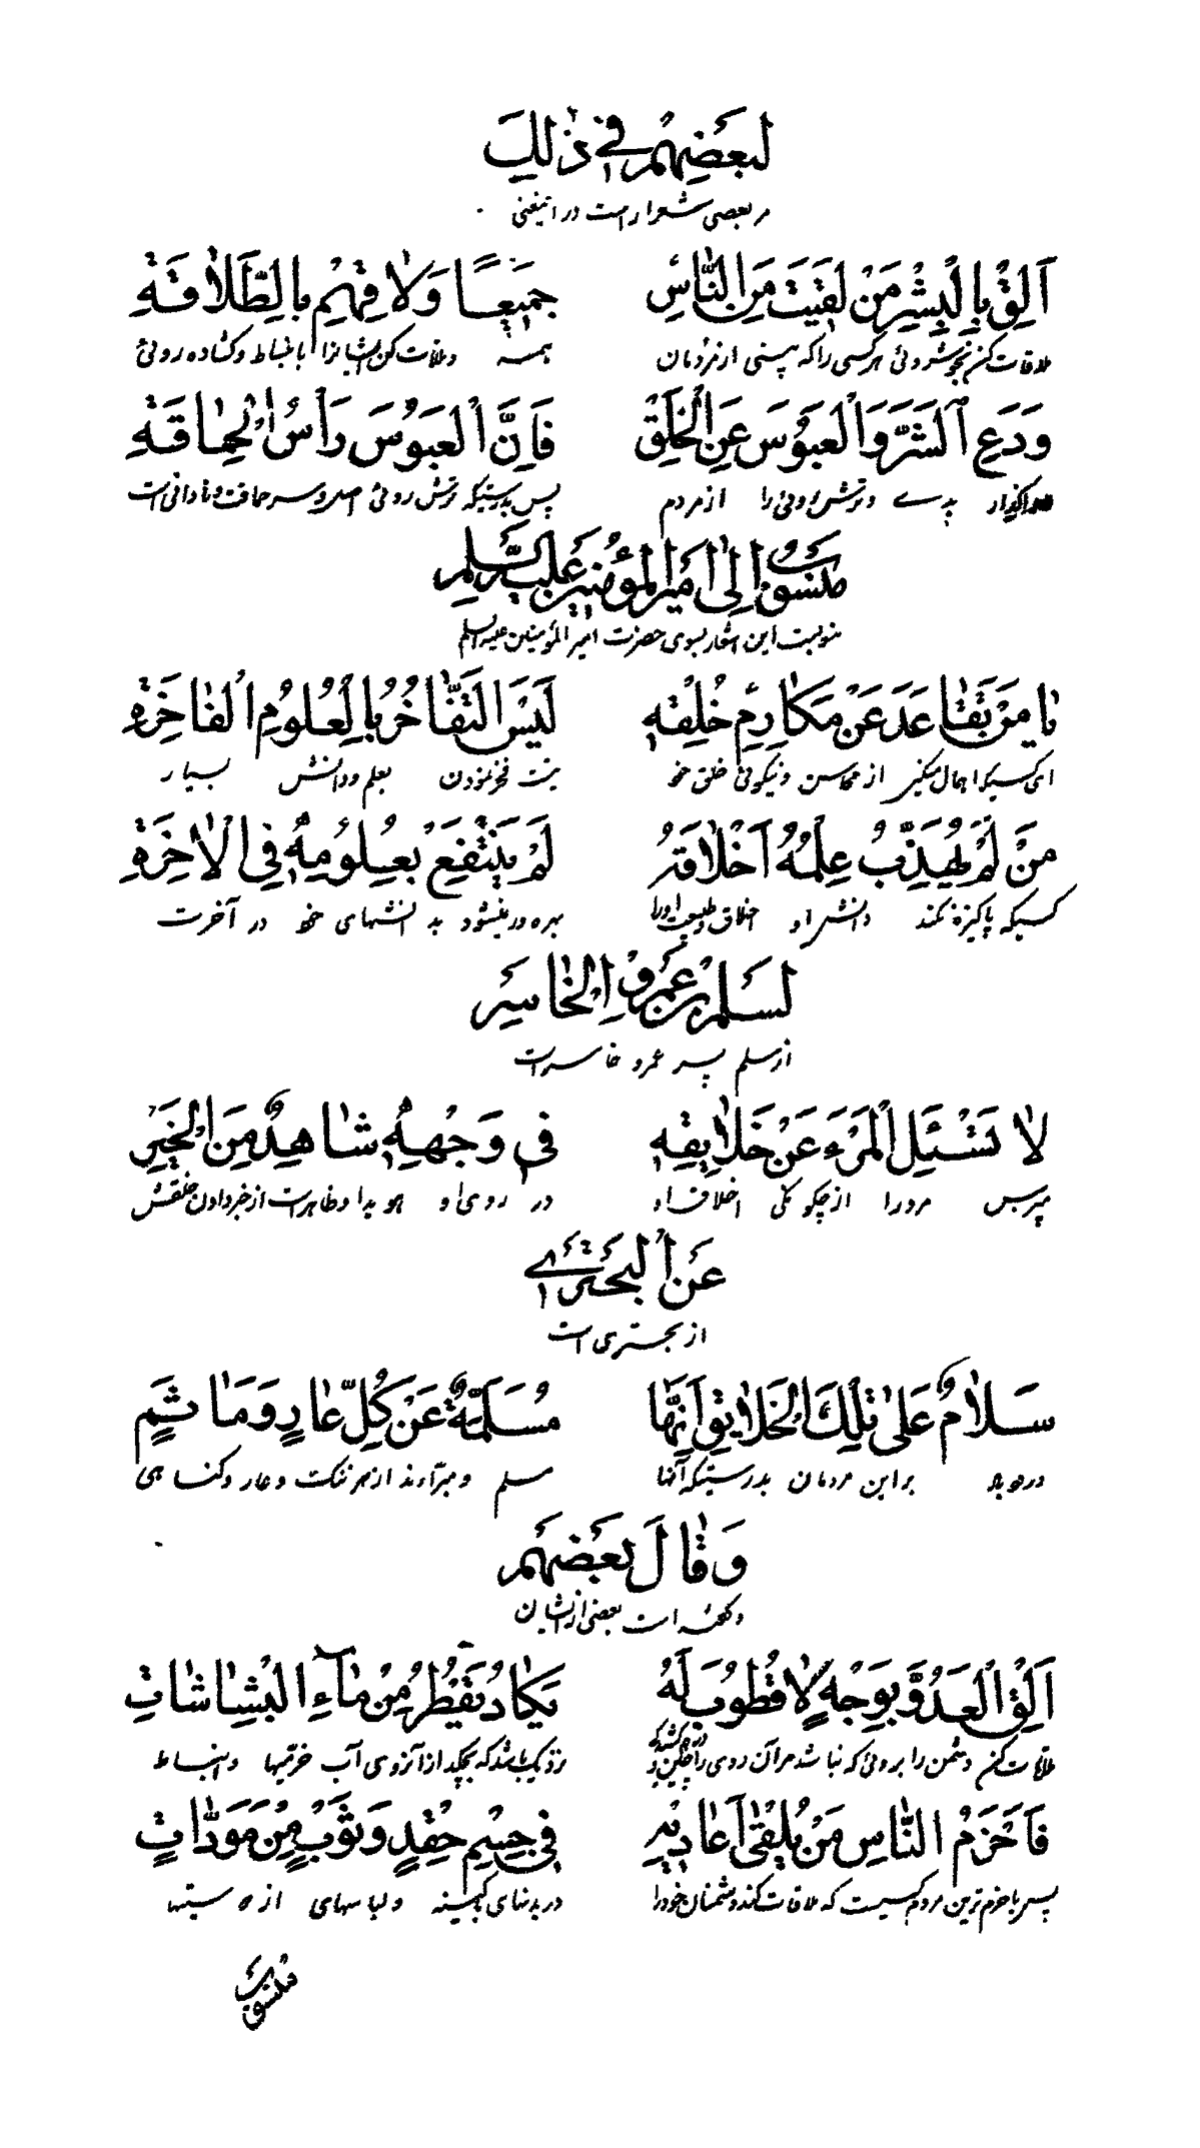 لِبَعْضِهِمْ فِی ذٰلِكَ
مر بعضی شعرا راست در اینمعنی
اَلِقْ بِالْبِشْرِ مَنْ لَقِیتَ مِنَ النّٰاسِ جَمیعًا وَلٰاقِهِمْ بِالطَّلٰاقَةِ
ملاقات کن بخوشروئی هر کسی را که بینی از مردمان همه وملاقات کن ایشانرا با انبساط وگشاده روئی
وَدَعِ الشَّرَّ وَالْعَبُوسَ عَنِ الْخَلْقِ فَاِنَّ الْعَبُوسَ رَأْسُ الْحِمٰاقَةِ
واگذار بدی وترش روئی را از مردم پس بدرستیکه ترش روئی اصل وسر حماقت ونادانی است
مَنْسُوبٌ اِلٰی اَمیرِ الْمُؤْمِنینَ عَلَیْهِ السَّلٰم
منسوبست این اشعار بسوی حضرت امیر المؤمنین علیه السلم
یٰا مَنْ تَقٰاعَدَ عَنْ مَکٰارِمِ خُلْقِهِ لَیْسَ التَّفٰاخُرُ بِالْعُلُومِ الْفٰاخِرَةِ
ای کسیکه اهمال میکنی از محاسن ونیکوئی خلق خود نیست فخر نمودن بعلم ودانش بسیار
مَنْ لَمْ یُهَذِّبْ عِلْمُهُ اَخْلٰاقَهُ لَمْ یَنْتَفِعْ بِعُلُومِهِ فِی الْاٰخِرَةِ
کسیکه پاکیزه نکند دانش او اخلاق وطبیعت اورا بهره ور نمیشود بدانشهای خود در آخرت
لِسَلْمِ بْنِ عَمْرٍو الْخٰاسِرِ
از سلم پسر عمرو خاسر است
لٰا تَسْئَلِ الْمَرْءَ عَنْ خَلٰایِقِهِ فی وَجْهِهِ شٰاهِدٌ مِنَ الْخَبَرِ
مپرس مرد را از چگونگی اخلاق او در روی او هویدا وظاهر است از خبر دادن خلقش
عَنِ الْبُحْتُری
از بحتری است
سَلٰامٌ عَلٰی تِلْكَ الْخَلٰایِقِ اِنَّهٰا مُسَلَّمَةٌ عَنْ کُلِّ عٰارٍ وَمَاْثَمٍ
درود باد بر این مردمان بدرستیکه آنها مسلم ومبرّآءند از هر ننگ وعار وگناهی
وَقٰالَ بَعْضُهُمْ
وگفته است بعضی از ایشان
اَلِقْ الْعَدُوَّ بِوَجْهٍ لٰا قُطُوبَ لَهُ یَکٰادُ یَقْطُرُ مِنْ مٰاءِ الْبَشٰاشٰاتِ
ملاقات کن دشمن را بروئی که نباشد مر آن روی را چین و نزدیک باشد که بچکد از آنروی آب خرّمیها وانبساط
فَاَحْزَمُ النّٰاسِ مَنْ یَلْقٰی اَعٰادِیَهُ فی جِسْمِ حِقْدٍ وَثَوْبٍ مِنْ مَوَدّٰاتٍ
پس باحزم ترین مردم کسیست که ملاقات کند دشمنان خود را در بدنهای کینه ولباسهای از دوستیها
مَنْسُوبٌ